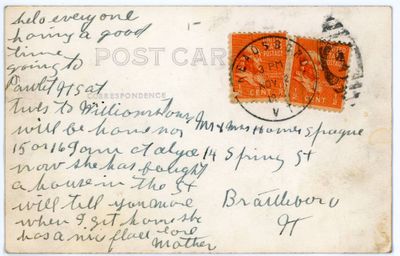 helo everyone
having a good
time
going to
POST CARD
CORRESPONDENCE
tues to Williamsburg
will be home nov
15 or 16 I am at Alyce
now she has bought
a house in the St
will tell you more
when I get home she
has a nice place love
Mother
Mr & Mrs Homer Sprague
14 Spring St
Brattleboro
Vt